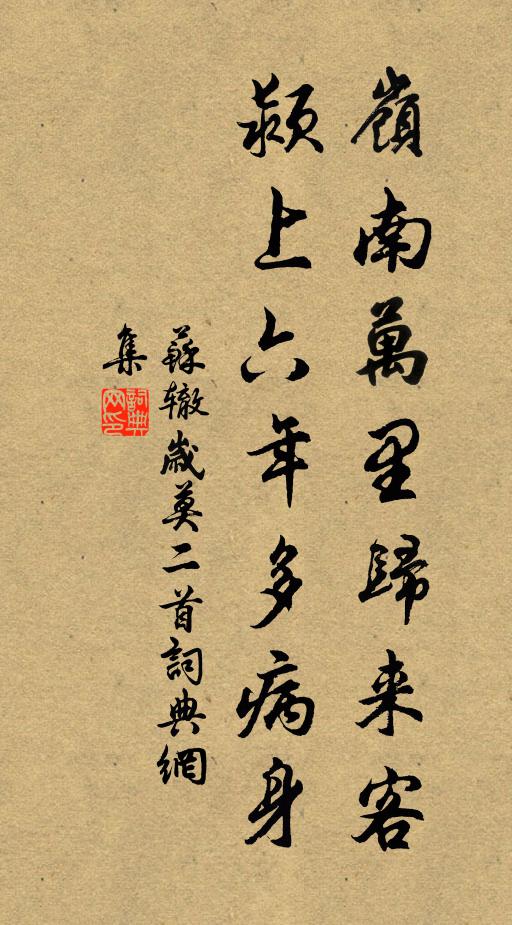 嶺南萬里歸来客
潁上六年多病身
蘇辙歲莫二首詞典網
集
詞典
网印